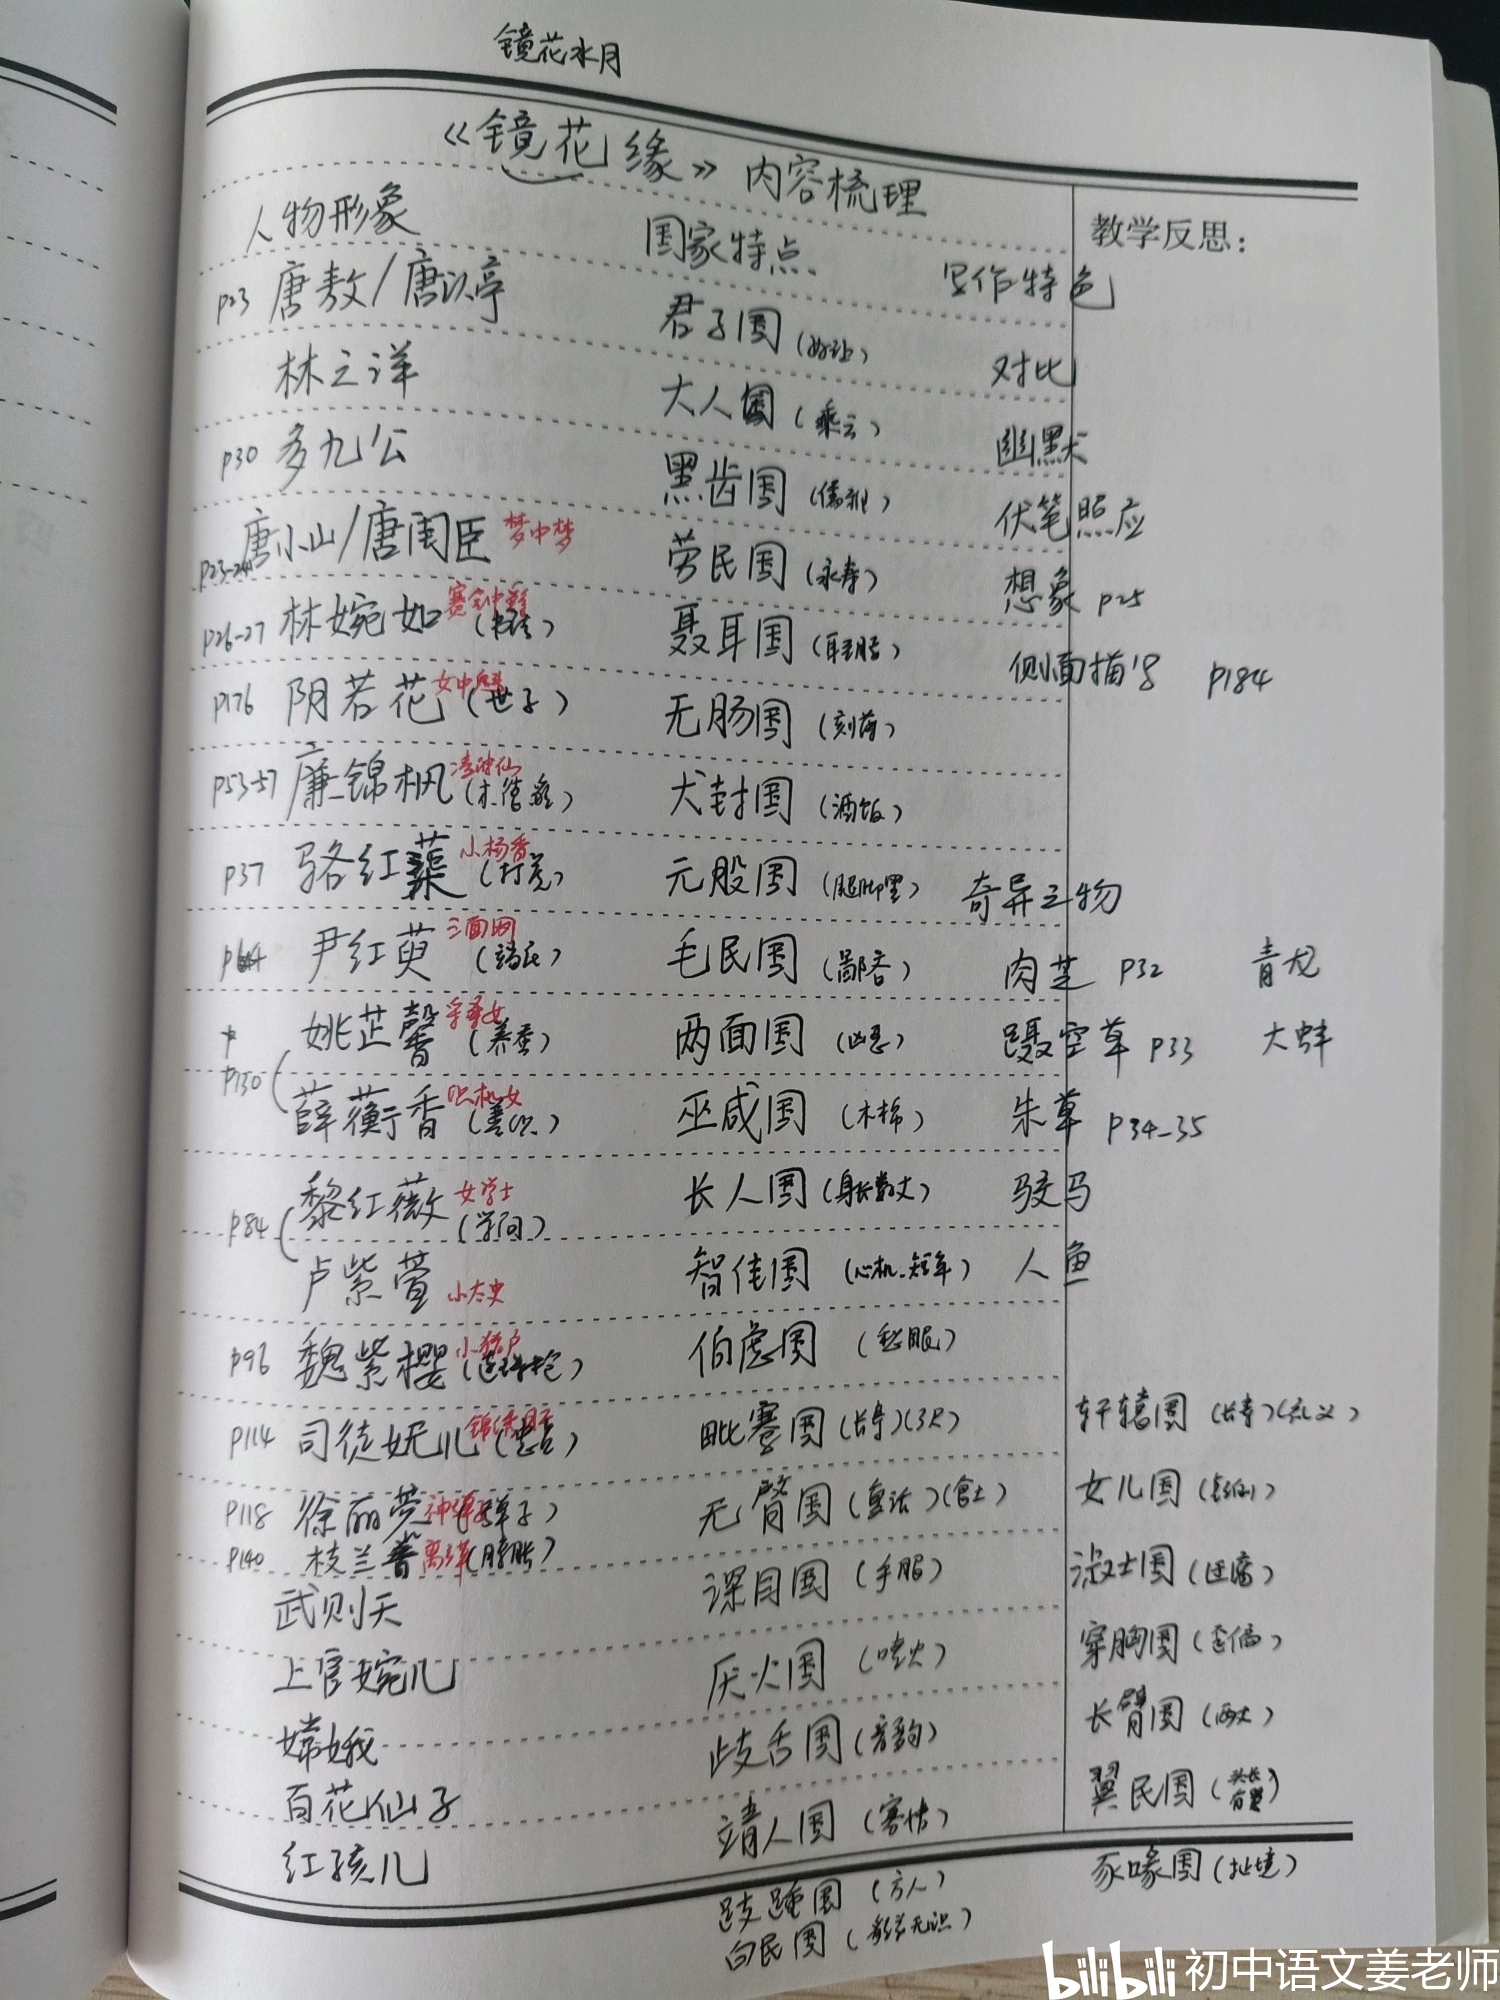 镜花水月
《镜花缘》内容梳理
教学反思：
人物形象
P23 唐敖/唐以亭
林之洋
P30 多九公
唐小山/唐闺臣 梦中梦
P23-24
P26-27 林婉如
P176 阴若花 (世子)
P53-57 廉锦枫
P37 骆红蕖 小杨香
(打虎)
尹红萸 三面网
(渔民)
姚芷馨
(养蚕)
P130
薛蘅香 织机女
(善织)
黎红薇 女学士
P84 (学问)
卢紫萱 小太史
P96 魏紫樱 小猎户
(连珠枪)
P114 司徒妩儿
P118 徐丽蓉 (弹子)
P140 枝兰音 (膨胀)
武则天
上官婉儿
嫦娥
百花仙子
红孩儿
国家特点
君子国 (好让)
大人国 (乘云)
黑齿国 (儒雅)
劳民国 (永寿)
聂耳国
无肠国 (刻薄)
犬封国 (酒饭)
元股国 (腿脚黑)
毛民国 (鄙吝)
两面国 (凶恶)
巫咸国 (木棉)
长人国 (身长数丈)
智佳国 (心机、短年)
伯虑国 (愁眠)
毗骞国 (长寿)(3尺)
无臂国 (复活)(食土)
深目国 (手眼)
厌火国 (喷火)
歧舌国 (音韵)
靖人国 (寡情)
跂踵国 (方人)
白民国
写作特色
对比
幽默
伏笔照应
想象 P25
侧面描写 P184
奇异之物
肉芝 P32 青龙
蹑空草 P33 大蚌
朱草 P34-35
驳马
人鱼
轩辕国 (长寿)(礼义)
女儿国
淑士国 (迂腐)
穿胸国 (歪偏)
长臂国 (两丈)
翼民国 (头长 有翼)
豕喙国 (扯谎)
bilibili 初中语文姜老师